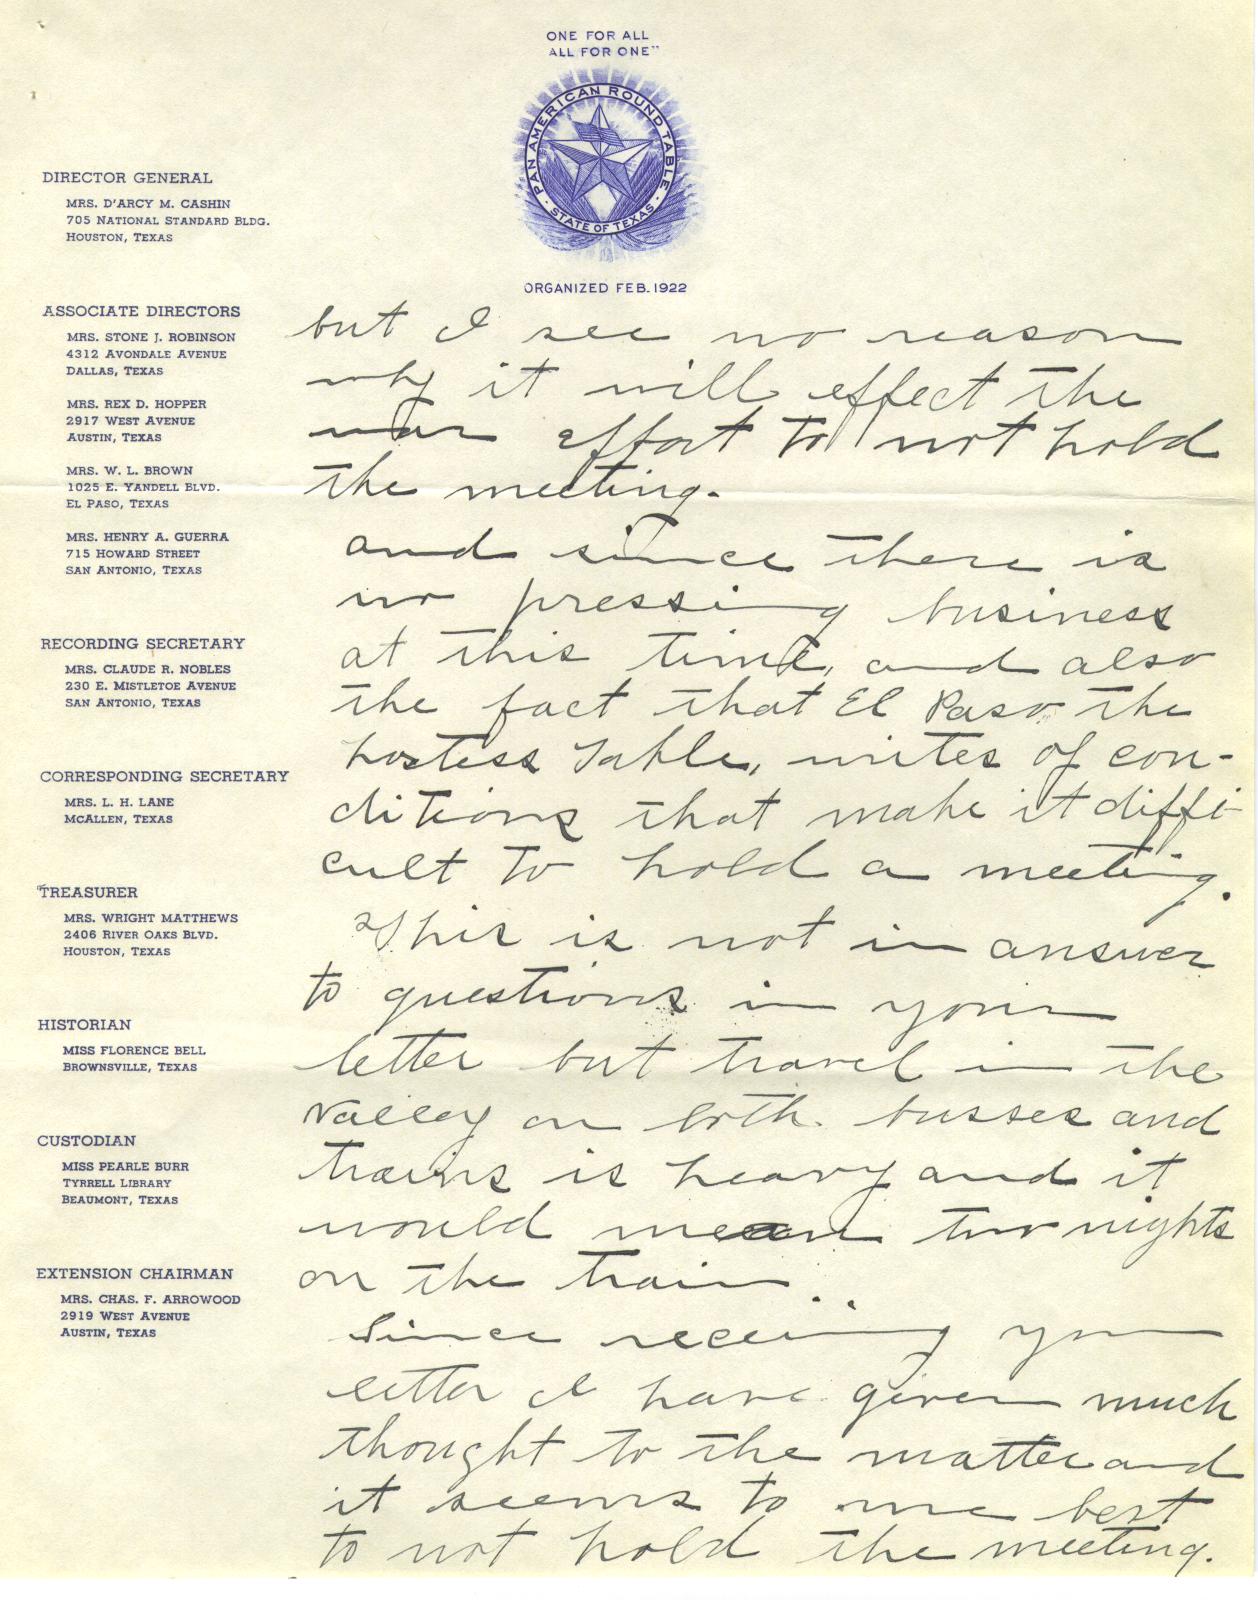 ONE FOR ALL
ALL FOR ONE"
PAN AMERICAN ROUND TABLE
STATE OF TEXAS
ORGANIZED FEB. 1922
DIRECTOR GENERAL
MRS. D'ARCY M. CASHIN
705 NATIONAL STANDARD BLDG.
HOUSTON, TEXAS
ASSOCIATE DIRECTORS
MRS. STONE J. ROBINSON
4312 AVONDALE AVENUE
DALLAS, TEXAS
MRS. REX D. HOPPER
2917 WEST AVENUE
AUSTIN, TEXAS
MRS. W. L. BROWN
1025 E. YANDELL BLVD.
EL PASO, TEXAS
MRS. HENRY A. GUERRA
715 HOWARD STREET
SAN ANTONIO, TEXAS
RECORDING SECRETARY
MRS. CLAUDE R. NOBLES
230 E. MISTLETOE AVENUE
SAN ANTONIO, TEXAS
CORRESPONDING SECRETARY
MRS. L. H. LANE
MCALLEN, TEXAS
TREASURER
MRS. WRIGHT MATTHEWS
2406 RIVER OAKS BLVD.
HOUSTON, TEXAS
HISTORIAN
MISS FLORENCE BELL
BROWNSVILLE, TEXAS
CUSTODIAN
MISS PEARLE BURR
TYRRELL LIBRARY
BEAUMONT, TEXAS
EXTENSION CHAIRMAN
MRS. CHAS. F. ARROWOOD
2919 WEST AVENUE
AUSTIN, TEXAS
but I see no reason
why it will effect the
war effort to not hold
the meeting.
and since there is
no pressing business
at this time, and also
the fact that El Paso the
hostess Table, writes of con-
ditions that make it diffi-
cult to hold a meeting.
This is not in answer
to questions in your
letter but travel in the
Valley on both busses and
trains is heavy and it
would mean two nights
on the train..
Since receiving your
letter I have given much
thought to the matter and
it seems to me best
to not hold the meeting.